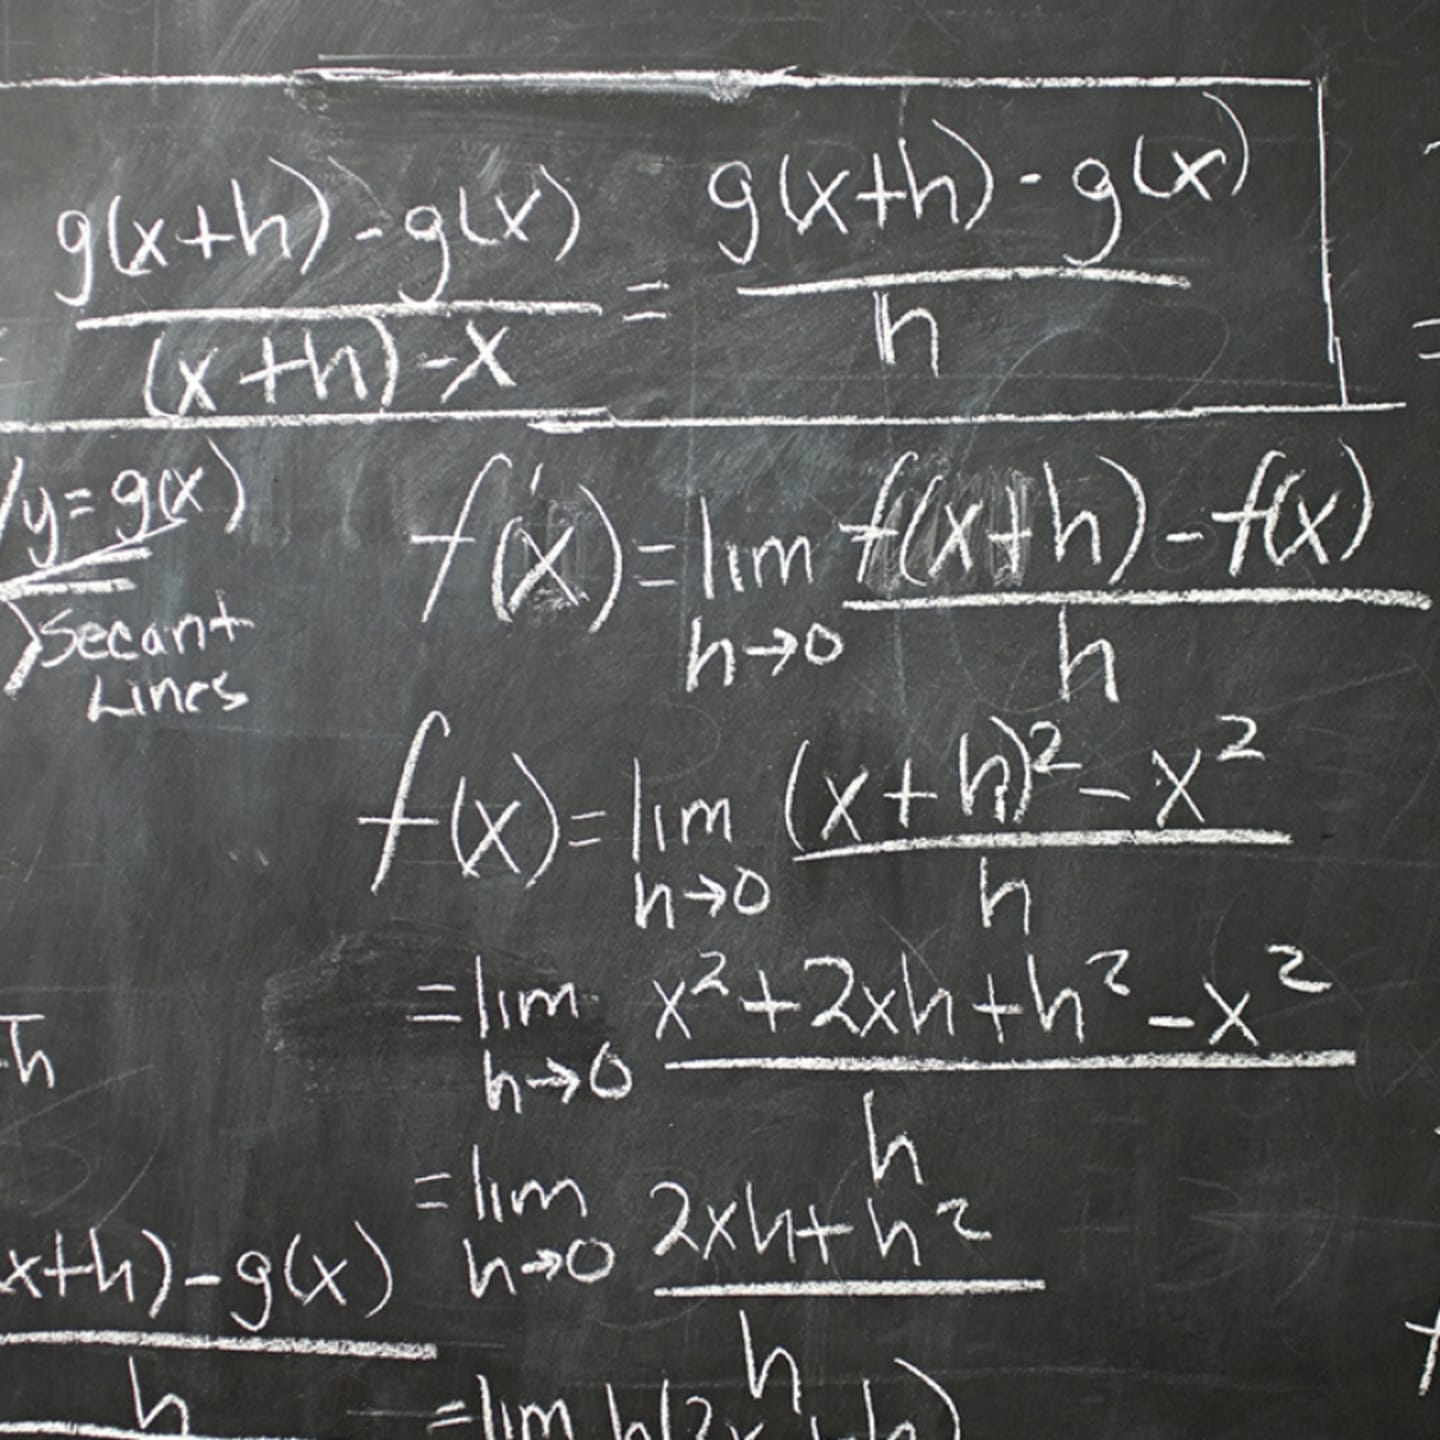 g(x+h) - g(x) / (x+h) - x = g(x+h) - g(x) / h
y = g(x)
Secant
Lines
f'(x) = lim h→0 f(x+h) - f(x) / h
f(x) = lim h→0 (x+h)² - x² / h
= lim h→0 x² + 2xh + h² - x² / h
= lim h→0 2xh + h² / h
x+h) - g(x) / h
= lim h(2x + h)